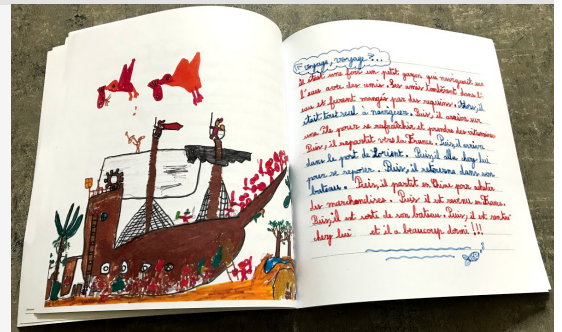 voyage, voyage ?...
Il était une fois un petit garçon qui naviguait sur
l'eau avec des amis. Ses amis tombèrent dans l'
eau et furent mangés par des requins. Alors, il
était tout seul à naviguer. Puis, il arriva sur
une île pour se rafraîchir et prendre des vitamines
Puis, il repartit vers la France. Puis, il arriva
dans le port de Lorient. Puis, il alla chez lui
pour se reposer. Puis, il retourna dans son
bateau. Puis, il partit en Chine pour acheter
des marchandises. Puis il est revenu en France.
Puis, il est sorti de son bateau. Puis, il est rentré
chez lui et il a beaucoup dormi !!!